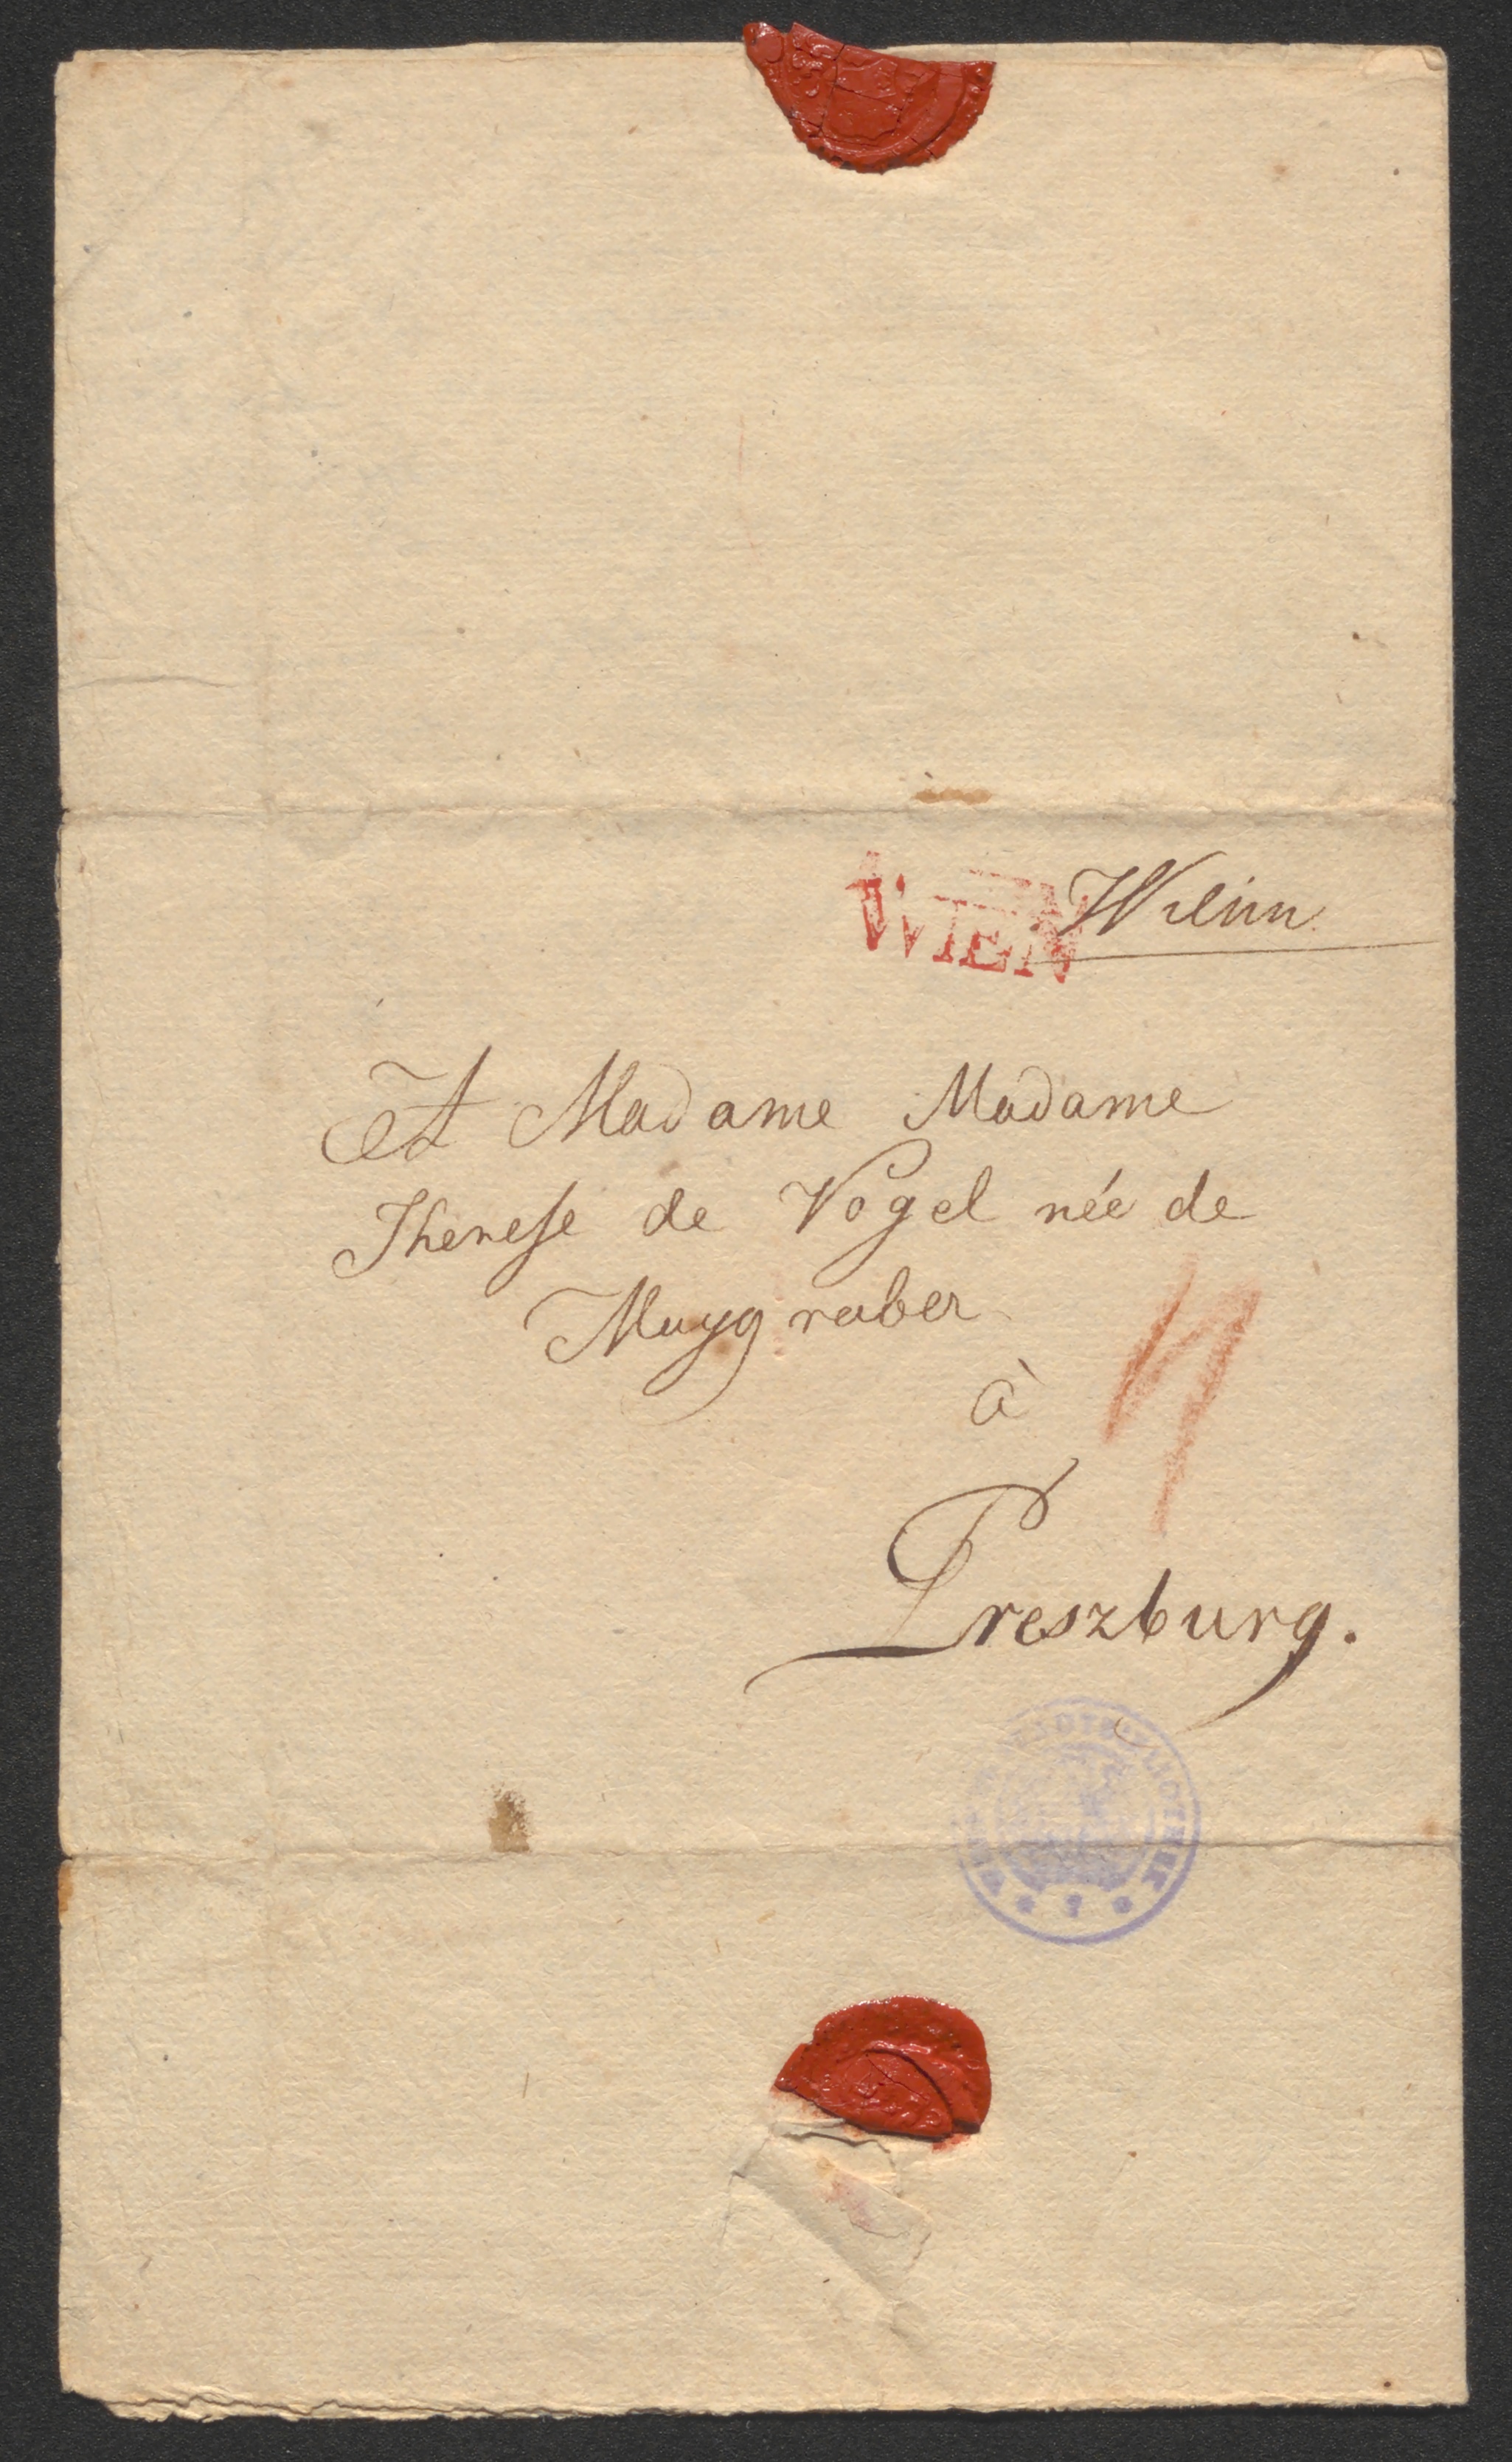 WIEN Wienn
A Madame Madame
Therese de Vogel née de
Muygraber
à
Preszburg.